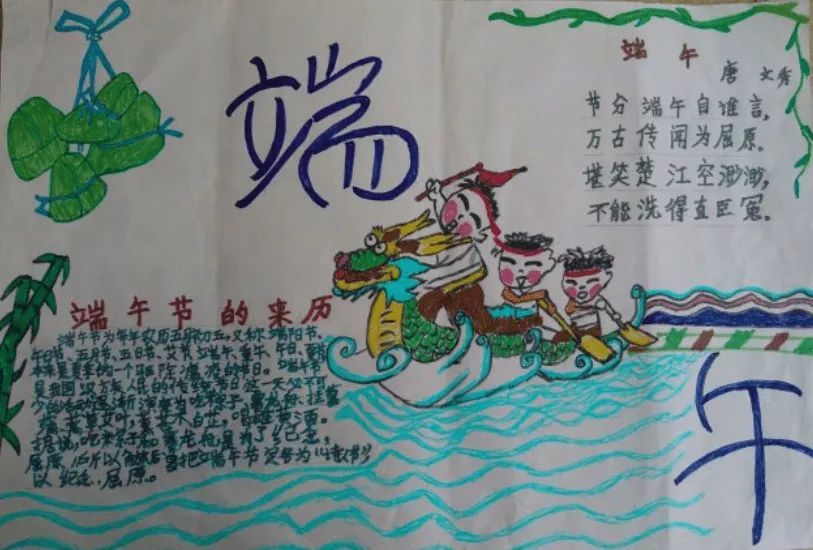 端
端午
唐 文秀
节分端午自谁言,
万古传闻为屈原。
堪笑楚江空渺渺,
不能洗得直臣冤。
端午节的来历
端午节为每年农历五月初五,又称端阳节、
午日节、五月节、五日节、艾节、端午、重午、午日、夏节
本来是夏季的一个驱除瘟疫的节日。端午节
是我国汉族人民的传统节日这一天必不可
少的活动逐渐演变为吃粽子,赛龙舟,挂菖
喝雄黄酒。
据说,吃粽子和赛龙舟,是为了纪念
屈原,所以
以纪念屈原。
午